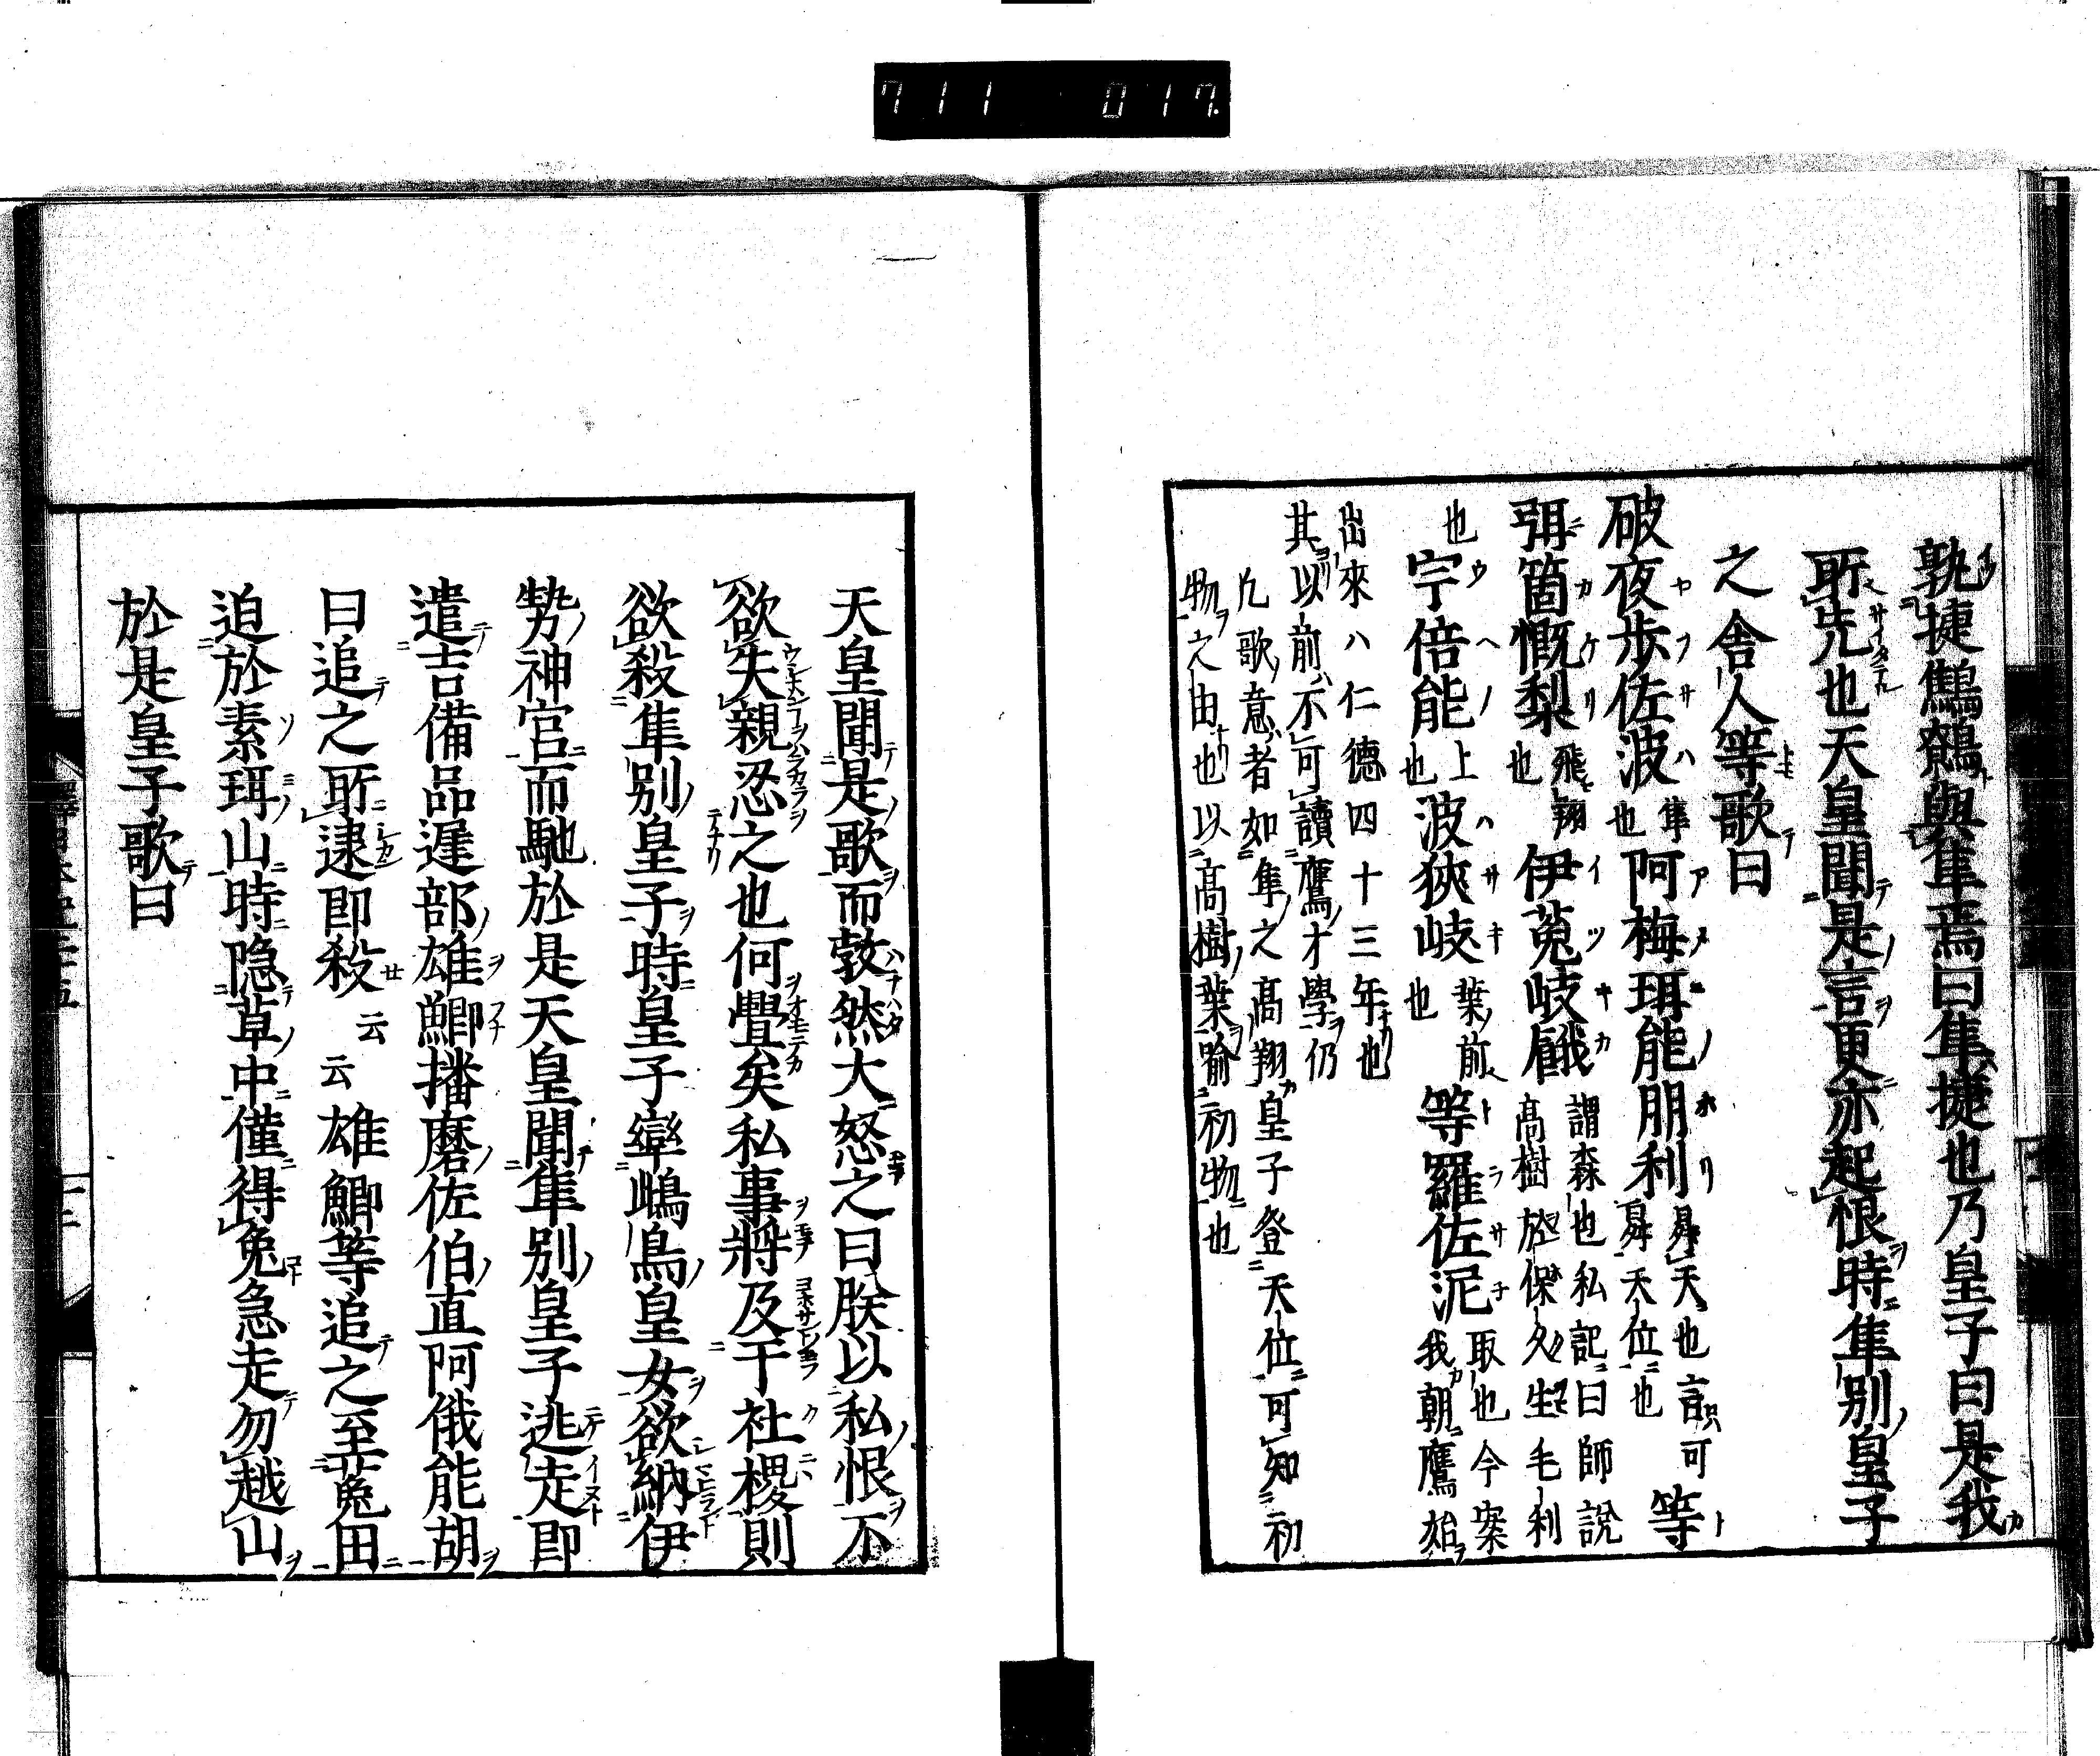 711 017
孰捷鷦鷯與隼焉曰隼捷也乃皇子曰是我
所先也天皇聞是言更亦起恨時隼別皇子
之舎人等歌曰
破夜歩佐波隼也阿梅珥能朋利昇天也言可昇天位也等
弭箇慨梨飛翔也伊菟岐餓謂森也私記曰師說高樹於保久生毛利
也宇倍能上也波狹岐葉前也等羅佐泥取也今案我朝鷹始
出來ハ仁德四十三年也
其以前不可讀鷹才學仍
凢歌意者如隼之高翔皇子登天位可知初
物之由也以高樹葉喻初物也
天皇聞是歌而勃然大怒之曰朕以私恨不
欲失親忍之也何舋矣私事將及于社稷則
欲殺隼別皇子時皇子率鴟鳥皇女欲納伊
勢神宮而馳於是天皇聞隼別皇子逃走即
遣吉備品遲部雄鯽播磨佐伯直阿俄能胡
曰追之所逮即殺云云雄鯽等追之至菟田
迫於素珥山時隱草中僅得兔急走勿越山
於是皇子歌曰